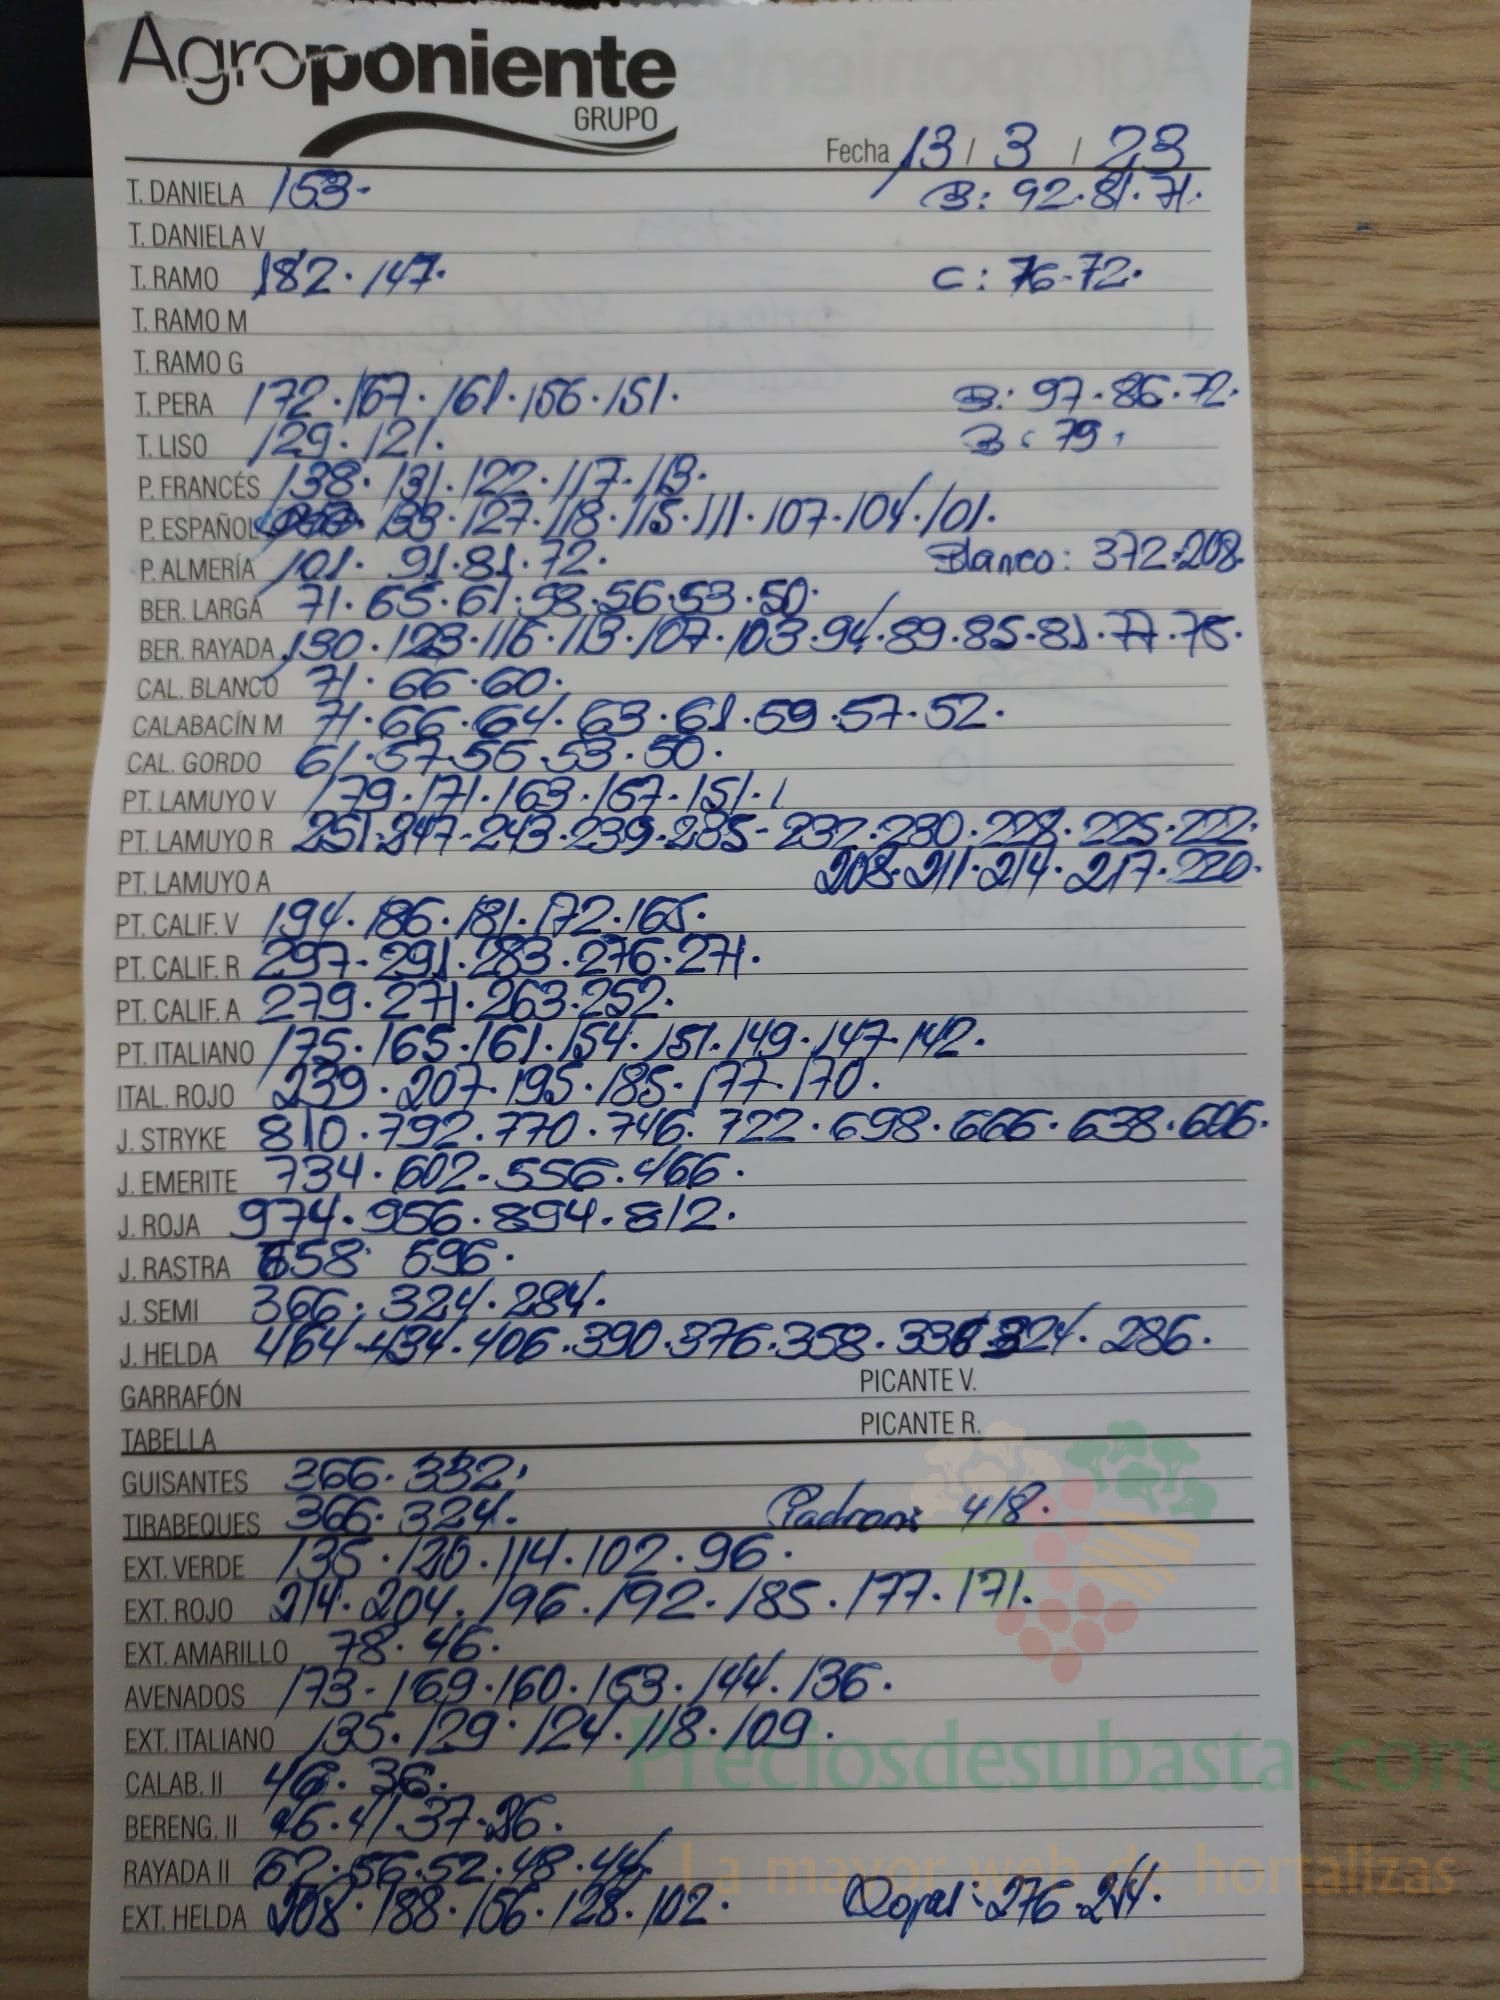 Agroponiente
GRUPO
Fecha 13 / 3 / 23
T. DANIELA 153. B: 92.81.71.
T. DANIELA V
T. RAMO 182.147. C: 76-72.
T. RAMO M
T. RAMO G
T. PERA 172.167.161.156.151. B: 97.86.72.
T. LISO 129.121. B: 79.
P. FRANCÉS 138.131.122.117.113.
P. ESPAÑOL 133.127.118.115.111.107.104.101.
P. ALMERÍA 101. 91.81.72. Blanco: 372.208.
BER. LARGA 71.65.61.58.56.53.50.
BER. RAYADA 130.123.116.113.107.103.94.89.85.81.77.75.
CAL. BLANCO 71.66.60.
CALABACÍN M 71.66.64.63.61.59.57.52.
CAL. GORDO 61.57.55.53.50.
PT. LAMUYO V 179.171.163.157.151.
PT. LAMUYO R 251.247-243.239.235-232.230.228.225.222.
PT. LAMUYO A 208.211.214.217.220.
PT. CALIF. V 194.186.181.172.165.
PT. CALIF. R 297-291.283.276.271.
PT. CALIF. A 279.271.263.252.
PT. ITALIANO 175.165.161.154.151.149.147.142.
ITAL. ROJO 239.207.195.185.177.170.
J. STRYKE 810.792.770.746.722.698.666.638.606.
J. EMERITE 734.602.556.466.
J. ROJA 974.956.894.812.
J. RASTRA 658. 596.
J. SEMI 366.324.284.
J. HELDA 464.434.406.390.376.358.336.324.286.
GARRAFÓN PICANTE V.
TABELLA PICANTE R.
GUISANTES 366.332.
TIRABEQUES 366.324. Padron: 418.
EXT. VERDE 135.120.114.102.96.
EXT. ROJO 214.204.196.192.185.177.171.
EXT. AMARILLO 78.46.
AVENADOS 173-169.160.153.144.136.
EXT. ITALIANO 135.129.124.118.109.
CALAB. II 46.36.
BERENG. II 46.41.37.36.
RAYADA II 62.56.52.48.44.
EXT. HELDA 208.188.156.128.102. 276.214.
Preciosdesubasta.com
La mayor web de hortalizas